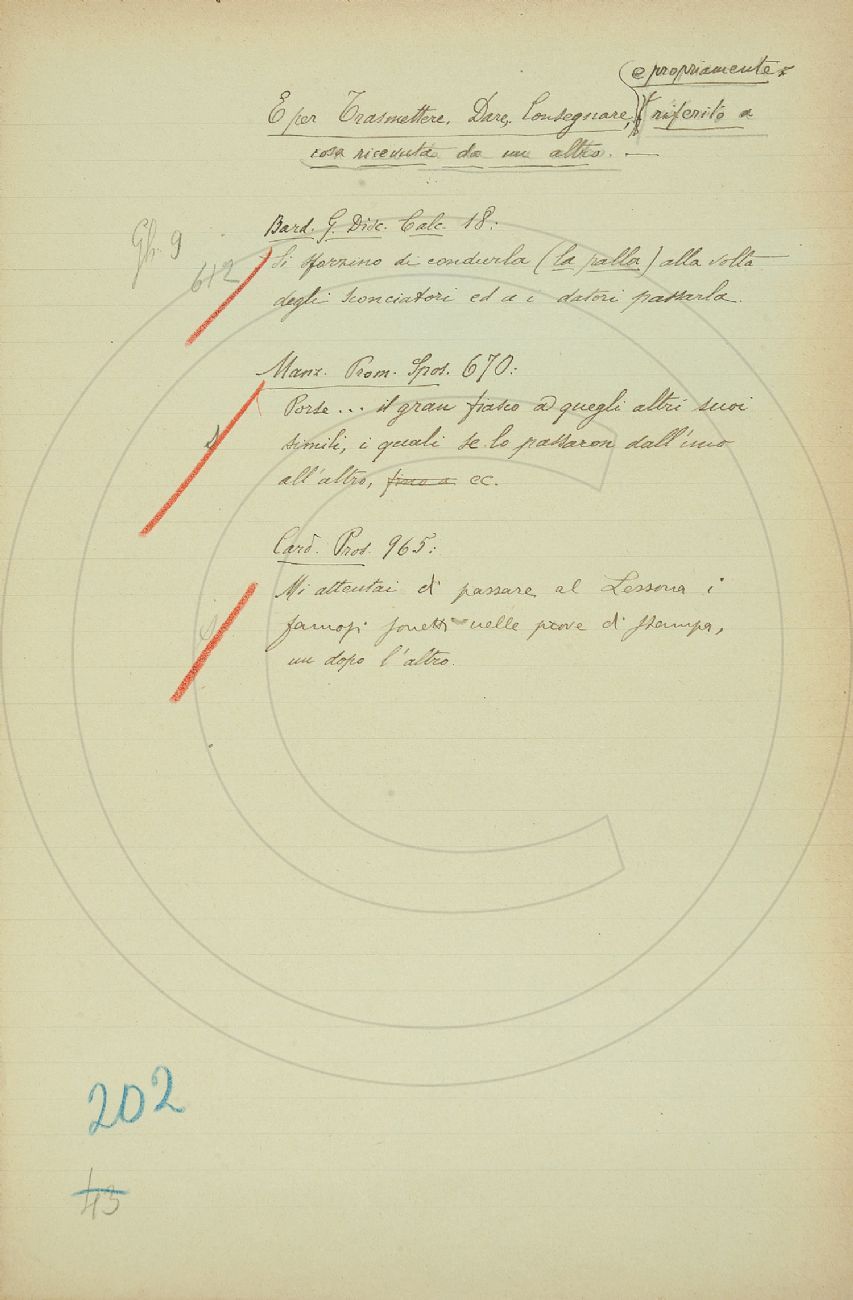 e propriamente
E per Trasmettere, Dare, Consegnare, riferito a
cosa ricevuta da un altro. —
Bard. G. Disc. Calc. 18:
Gh. 9
612
Si sforzino di condurla (la palla) alla volta
degli sconciatori ed a i datori passarla.
Manz. Prom. Spos. 670:
Porse... il gran fiasco a quegli altri suoi
simili, i quali se lo passaron dall'uno
all'altro, fino a ec.
Card. Pros. 965:
Mi attentai di passare al Lessona i
famosi sonetti nelle prove di stampa,
un dopo l'altro.
202
43